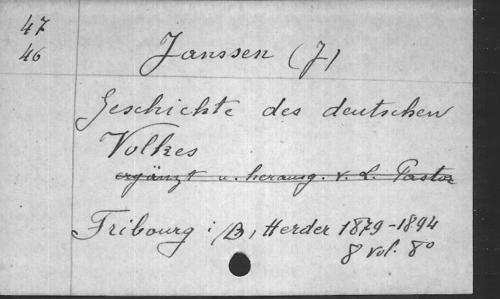 47
46
Janssen (J)
Geschichte des deutschen
Volkes
ergänzt u. herausg. v. L. Pastor
Fribourg i/B, Herder 1879-1894
8 vol. 8°